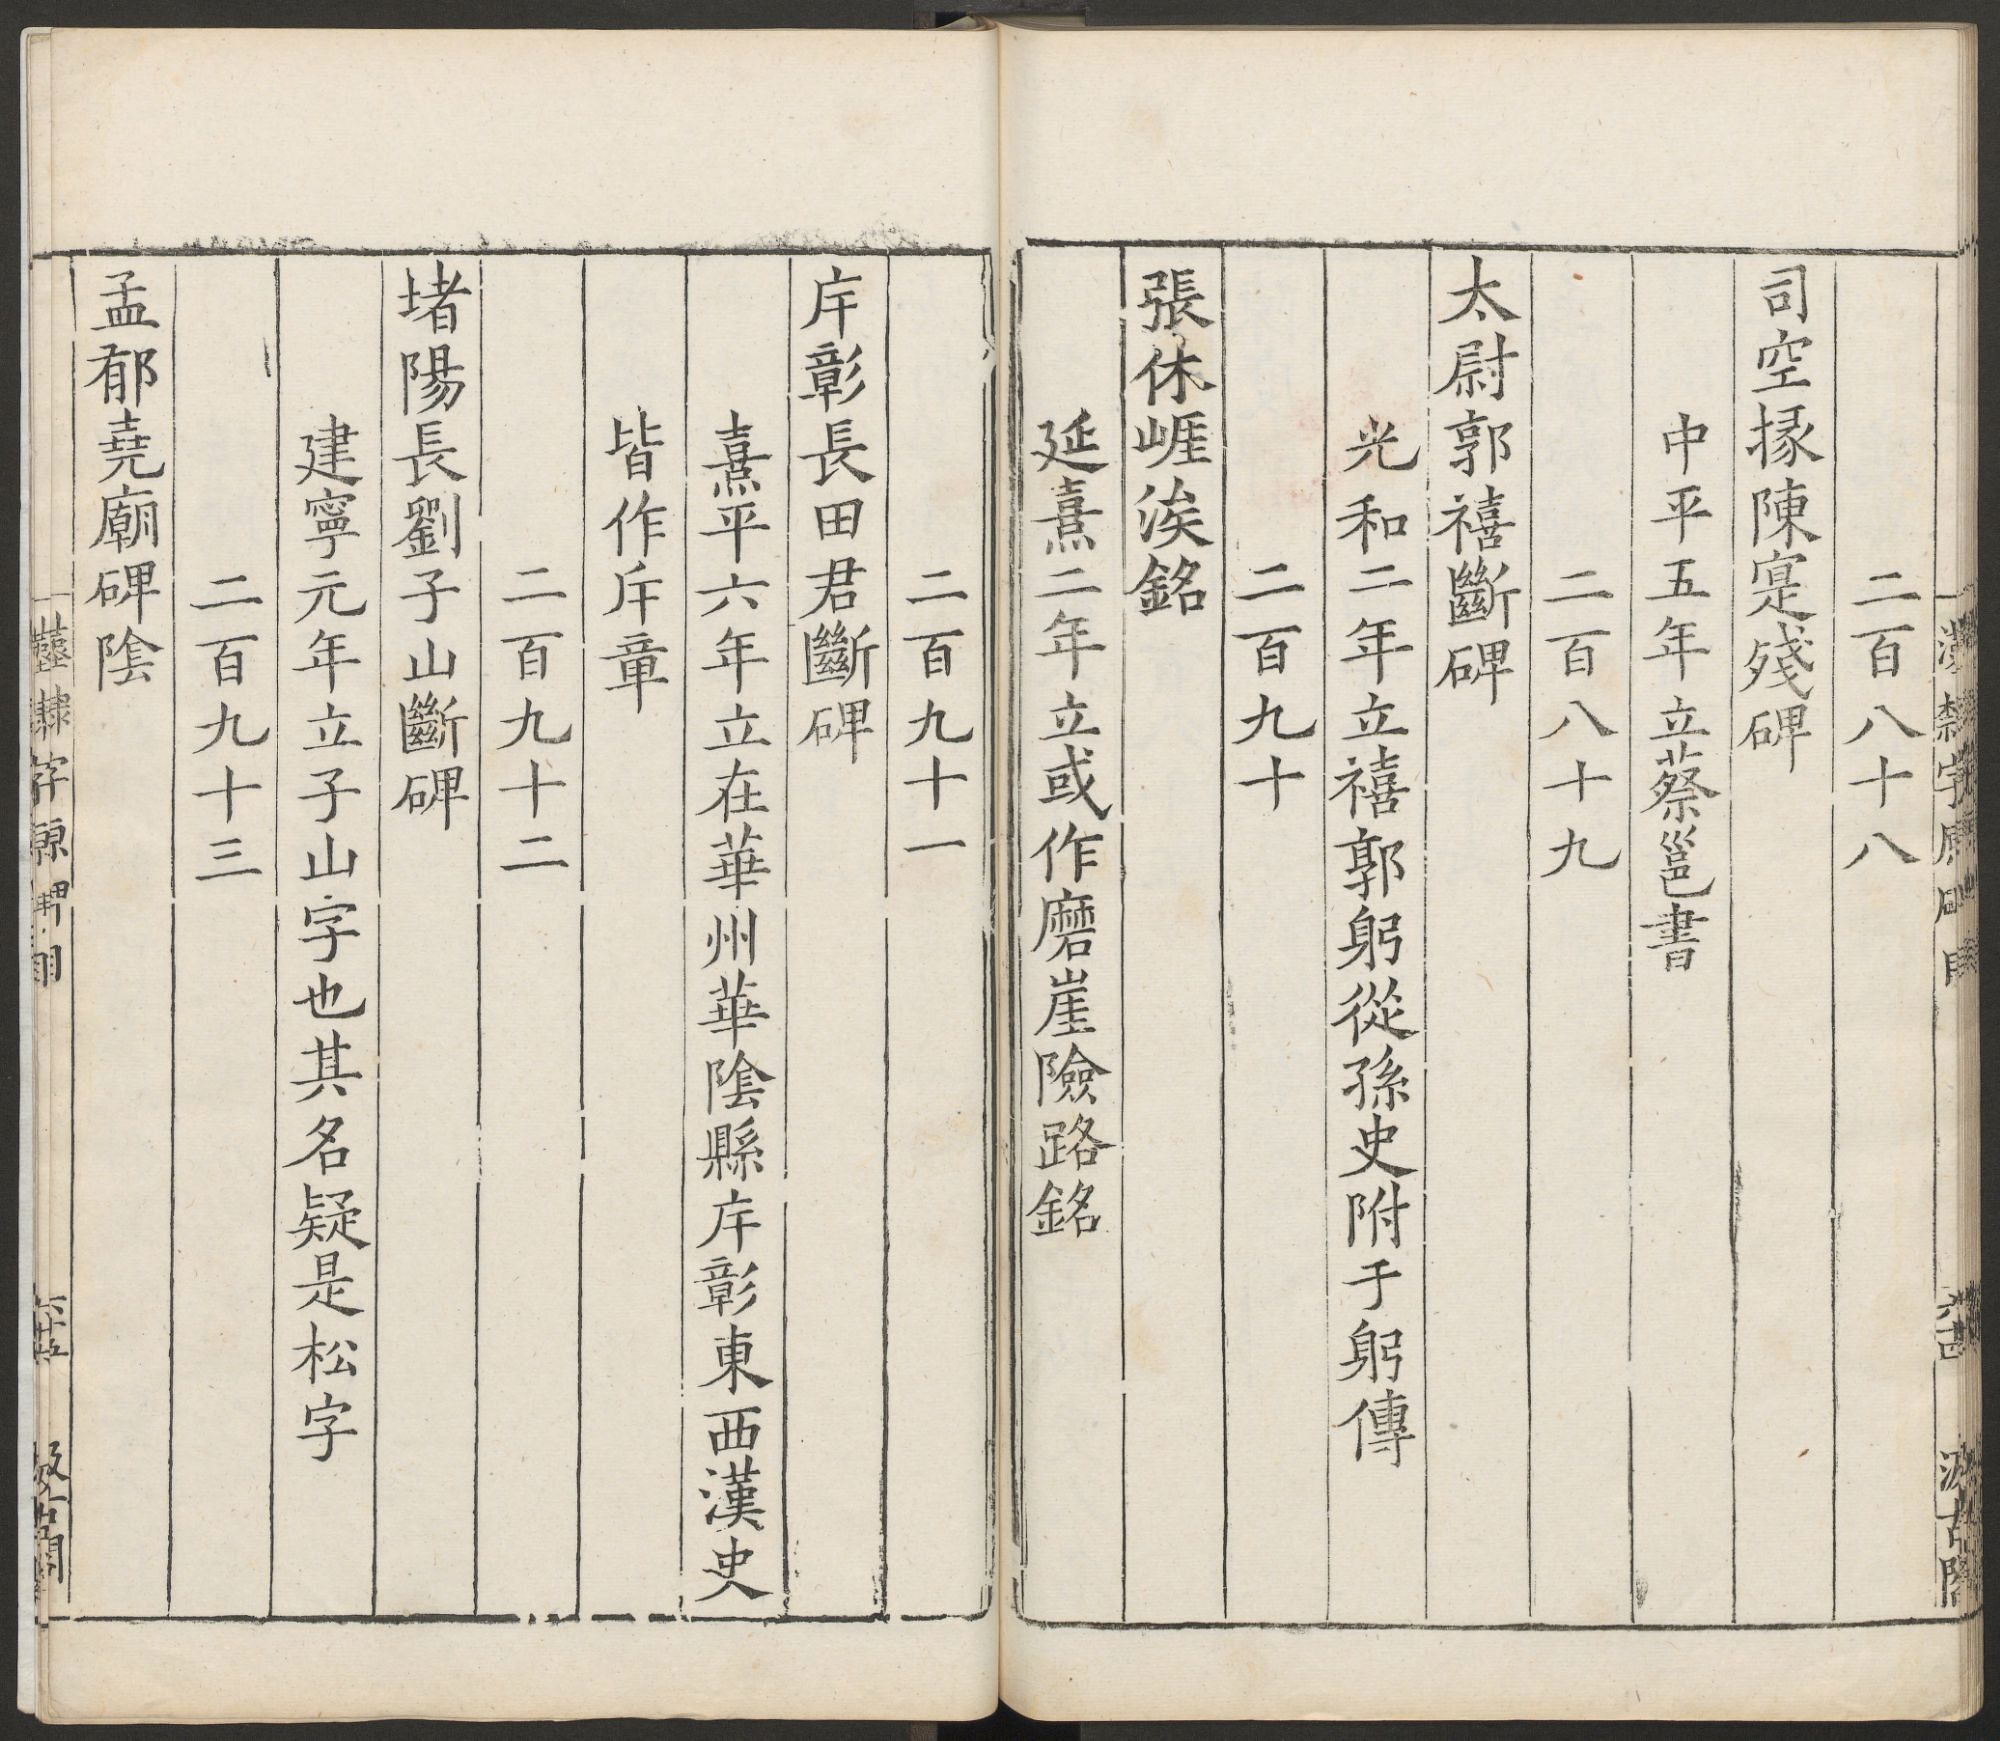 二百八十八
司空掾陳寔殘碑
中平五年立蔡邕書
二百八十九
太尉郭禧斷碑
光和二年立禧郭躬從孫史附于躬傳
二百九十
張休崕涘銘
延熹二年立或作磨崖險路銘
二百九十一
斥彰長田君斷碑
熹平六年立在華州華陰縣斥彰東西漢史
皆作斥章
二百九十二
堵陽長劉子山斷碑
建寧元年立子山字也其名疑是松字
二百九十三
孟郁堯廟碑陰